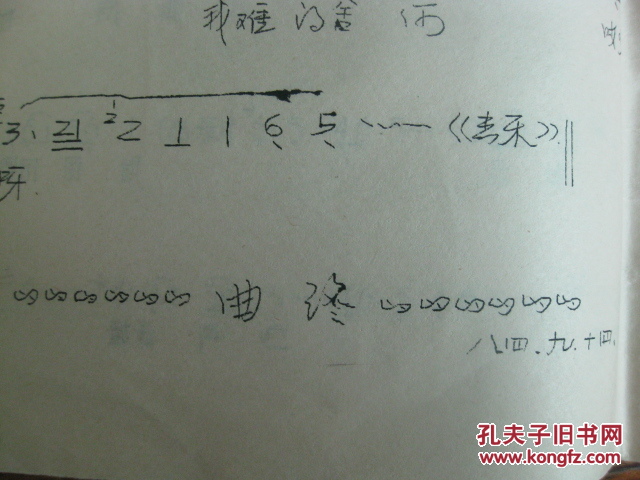 我难
3. 21 2 2 1 1 6 5 ……《音乐》
呀
曲 终
八四.九.十四.
孔夫子旧书网
www.kongfz.com